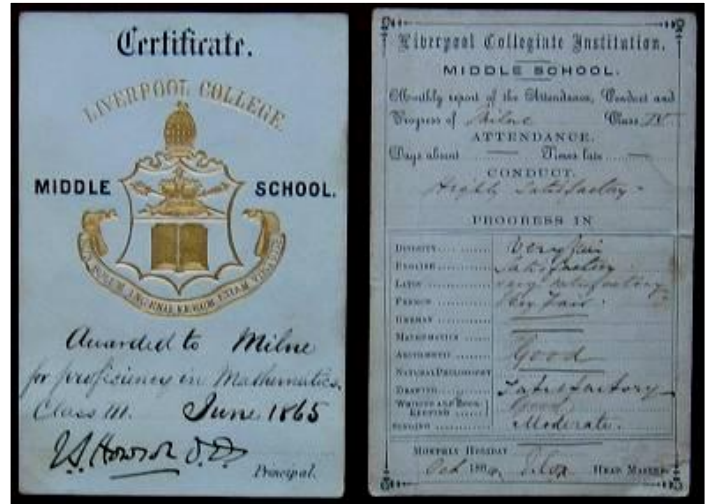 Certificate.
LIVERPOOL COLLEGE
MIDDLE SCHOOL.
NON SOLUM INGENII VERUM ETIAM VIRTUTIS
Awarded to Milne
for proficiency in Mathematics.
Class III. June 1865
J.S. Howson D.D.
Principal.
Liverpool Collegiate Institution.
MIDDLE SCHOOL.
Monthly report of the Attendance, Conduct and
Progress of Milne Class IV
ATTENDANCE.
Days absent Times late
CONDUCT.
Highly Satisfactory
PROGRESS IN
DIVINITY Very Fair
ENGLISH Satisfactory
LATIN very satisfactory
FRENCH Very Fair
GERMAN
MATHEMATICS
ARITHMETIC Good
NATURAL PHILOSOPHY
DRAWING Satisfactory
WRITING AND BOOK KEEPING
SINGING Moderate.
MONTHLY HOLIDAY
Oct 186 HEAD MASTER